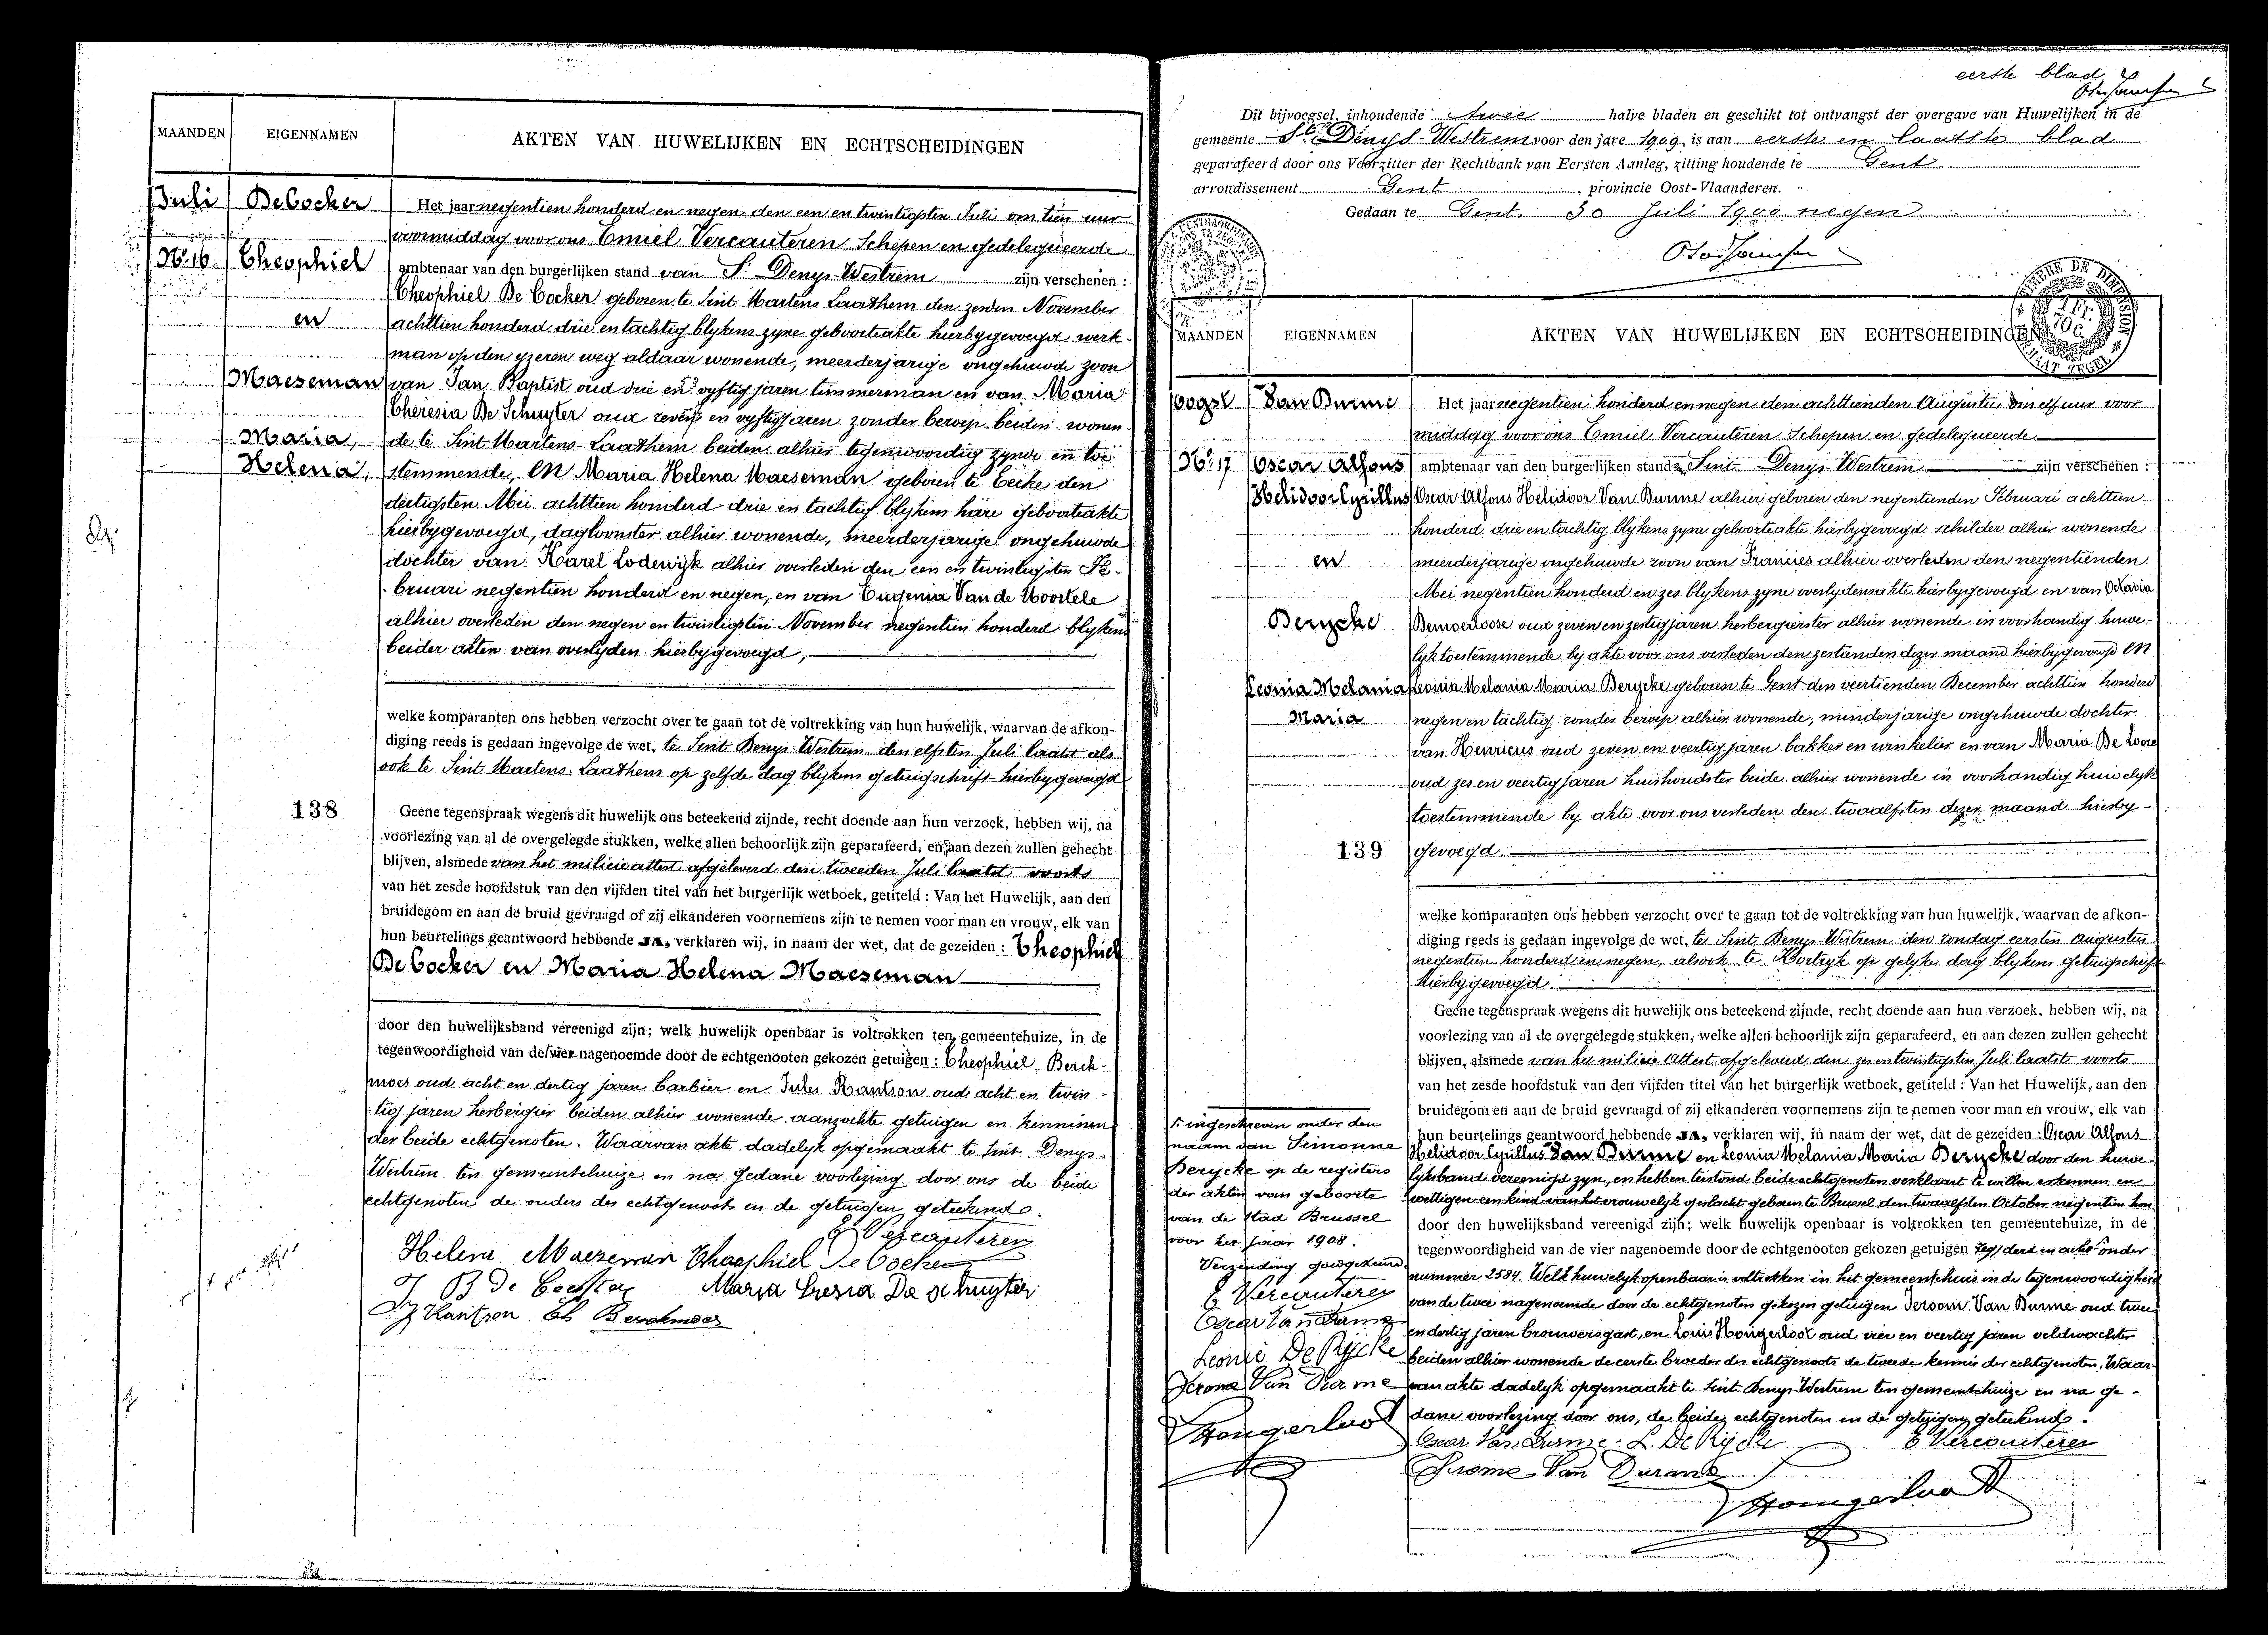 MAANDEN
EIGENNAMEN
AKTEN VAN HUWELIJKEN EN ECHTSCHEIDINGEN
Juli
De Cocker
No 16
Theophiel
en
Maeseman
Maria,
Helena,
138
Het jaar negentien honderd en negen den een en twintigsten Juli om tien uur
voormiddag voor ons Emiel Vercauteren Schepen en gedelegueerde
ambtenaar van den burgerlijken stand van St Denys-Westrem zijn verschenen :
Theophiel De Cocker geboren te Sint Martens Laathem den zesden November
achttien honderd drie en tachtig blykens zyne geboorteakte hierbygevoegd werk-
man op den yzeren weg aldaar wonende, meerderjarige ongehuwde zoon
van Jan Baptist oud drie en vyftig jaren timmerman en van Maria
Theresia De Schuyter oud zeven en vyftig jaren zonder beroep beiden wonen-
de te Sint Martens-Laathem beiden alhier tegenwoordig zynde en toe-
stemmende, en Maria Helena Maeseman geboren te Eecke den
dertigsten Mei achttien honderd drie en tachtig blykens hare geboorteakte
hierbygevoegd, dagloonster alhier wonende, meerderjarige ongehuwde
dochter van Karel Lodewijk alhier overleden den een en twintigsten Fe-
bruari negentien honderd en negen, en van Eugenia Van de Moortele
alhier overleden den negen en twintigsten November negentien honderd blykens
beider akten van overlyden hierbygevoegd,
welke komparanten ons hebben verzocht over te gaan tot de voltrekking van hun huwelijk, waarvan de afkon-
diging reeds is gedaan ingevolge de wet, te Sint Denys-Westrem den elfsten Juli laatst als
ook te Sint Martens-Laathem op zelfde dag blykens getuigschrift hierbygevoegd
Geene tegenspraak wegens dit huwelijk ons beteekend zijnde, recht doende aan hun verzoek, hebben wij, na
voorlezing van al de overgelegde stukken, welke allen behoorlijk zijn geparafeerd, en aan dezen zullen gehecht
blijven, alsmede van het milicie attest afgeleverd den tweeden Juli laatst voorts
van het zesde hoofdstuk van den vijfden titel van het burgerlijk wetboek, getiteld : Van het Huwelijk, aan den
bruidegom en aan de bruid gevraagd of zij elkanderen voornemens zijn te nemen voor man en vrouw, elk van
hun beurtelings geantwoord hebbende JA, verklaren wij, in naam der wet, dat de gezeiden : Theophiel
De Cocker en Maria Helena Maeseman
door den huwelijksband vereenigd zijn; welk huwelijk openbaar is voltrokken ten gemeentehuize, in de
tegenwoordigheid van de vier nagenoemde door de echtgenooten gekozen getuigen : Theophiel Berck-
moes oud acht en dertig jaren barbier en Jules Rantson oud acht en twin-
tig jaren herbergier beiden alhier wonende aanzochte getuigen en kenninen
der beide echtgenoten. Waarvan akte dadelyk opgemaakt te Sint Denys-
Westrem ten gemeentehuize en na gedane voorlezing door ons de beide
echtgenoten de ouders des echtgenoots en de getuigen geteekend.
E Vercauteren
Helena Maeseman Theophiel De Cocker
J B De Cocker Maria Tresia De Schuyter
J Rantson Th Berckmoes
eerste blad
Dit bijvoegsel, inhoudende twee halve bladen en geschikt tot ontvangst der overgave van Huwelijken in de
gemeente St Denijs-Westrem voor den jare 1909, is aan eerste en laatste blad
geparafeerd door ons Voorzitter der Rechtbank van Eersten Aanleg, zitting houdende te Gent
arrondissement Gent, provincie Oost-Vlaanderen.
Gedaan te Gent 30 Juli 1900 negen
MAANDEN
EIGENNAMEN
AKTEN VAN HUWELIJKEN EN ECHTSCHEIDINGEN
oogst
Van Durme
No 17
Oscar Alfons
Helidoor Cyrillus
en
Derycke
Leonia Melania
Maria
139
Het jaar negentien honderd en negen den achttienden Augusti, om elf uur voor-
middag voor ons Emiel Vercauteren Schepen en gedelegueerde
ambtenaar van den burgerlijken stand Sint Denys Westrem zijn verschenen :
Oscar Alfons Helidoor Van Durme alhier geboren den negentienden Februari achttien
honderd drie en tachtig blykens zyne geboorteakte hierbygevoegd schilder alhier wonende
meerderjarige ongehuwde zoon van Francies alhier overleden den negentienden
Mei negentien honderd en zes blykens zyne overlydensakte hierbygevoegd en van Octavia
Demoerloose oud zeven en zestig jaren herbergierster alhier wonende in voorhandig huwe-
lyk toestemmende by akte voor ons verleden den zestienden dezer maand hierbygevoegd en
Leonia Melania Maria Derycke geboren te Gent den veertienden December achttien honderd
negen en tachtig zonder beroep alhier wonende, minderjarige ongehuwde dochter
van Henricus oud zeven en veertig jaren bakker en winkelier en van Maria De Loore
oud zes en veertig jaren huishoudster beide alhier wonende in voorhandig huwelyk
toestemmende by akte voor ons verleden den twaalfsten dezer maand hierby-
gevoegd.
welke komparanten ons hebben verzocht over te gaan tot de voltrekking van hun huwelijk, waarvan de afkon-
diging reeds is gedaan ingevolge de wet, te Sint Denys-Westrem den zondag eersten Augustus
negentien honderd en negen, alsook te Kortryk op gelyke dag blykens getuigschrift
hierbygevoegd.
Geene tegenspraak wegens dit huwelijk ons beteekend zijnde, recht doende aan hun verzoek, hebben wij, na
voorlezing van al de overgelegde stukken, welke allen behoorlijk zijn geparafeerd, en aan dezen zullen gehecht
blijven, alsmede van het milicie Attest afgeleverd den zes en twintigsten Juli laatst voorts
van het zesde hoofdstuk van den vijfden titel van het burgerlijk wetboek, getiteld : Van het Huwelijk, aan den
bruidegom en aan de bruid gevraagd of zij elkanderen voornemens zijn te nemen voor man en vrouw, elk van
hun beurtelings geantwoord hebbende JA, verklaren wij, in naam der wet, dat de gezeiden : Oscar Alfons
Helidoor Cyrillus Van Durme en Leonia Melania Maria Derycke door den huwe-
lyksband vereenigd zyn, en hebben terstond beide echtgenoten verklaart te willen erkennen en
wettigen een kind van het vrouwelyk geslacht geboren te Brussel den twaalfden October negentien hon
door den huwelijksband vereenigd zijn; welk huwelijk openbaar is voltrokken ten gemeentehuize, in de
tegenwoordigheid van de vier nagenoemde door de echtgenooten gekozen getuigen derd en acht onder
nummer 2584. Welk huwelyk openbaar is voltrokken in het gemeentehuis in de tegenwoordigheid
van de twee nagenoemde door de echtgenoten gekozen getuigen Jeroom Van Durme oud twee
en dertig jaren brouwersgast, en Louis Hongerloot oud vier en veertig jaren veldwachter
beiden alhier wonende de eerste broeder des echtgenoots de tweede kennis der echtgenoten. Waar-
van akte dadelyk opgemaakt te Sint Denys-Westrem ten gemeentehuize en na ge-
dane voorlezing door ons, de beide echtgenoten en de getuigen geteekend.
Oscar Van Durme - L. De Rijcke E Vercauteren
Jerome Van Durme
Hongerloot
ingeschreven onder den
naam van Simonne
Derycke op de registers
der akten van geboorte
van de stad Brussel
voor het jaar 1908.
Verzending goedgekeurd
E Vercauteren
Oscar Van Durme
Leonie De Rijcke
Jerome Van Durme
Hongerloot